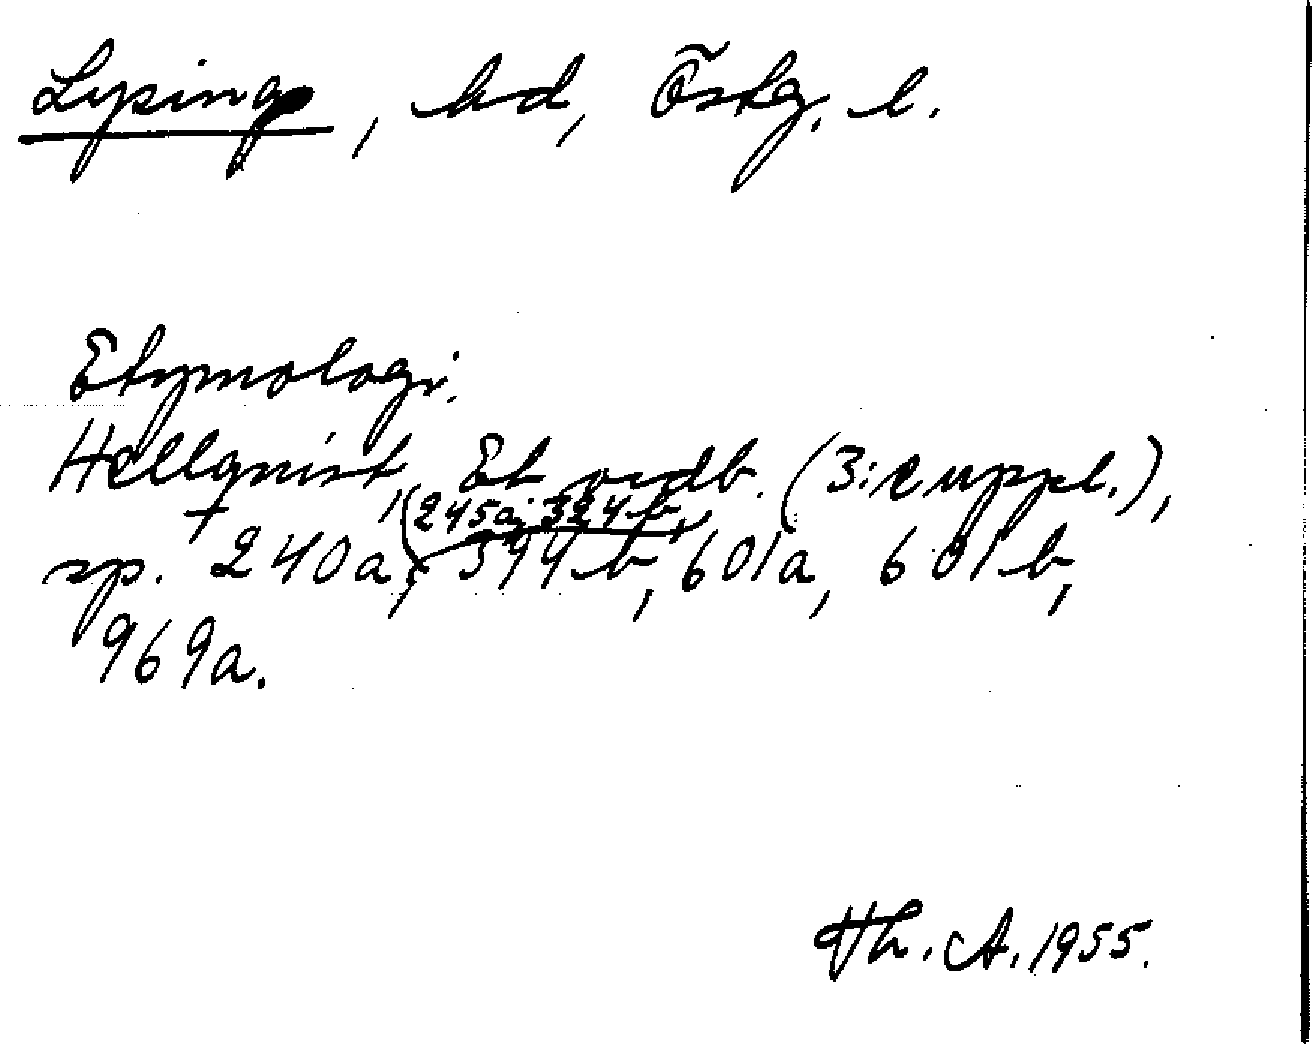 Lysing, hd, Östg. l.
Etymologi.
Hellquist, Et. ordb. (3:e uppl.),
245a, 324b,
sp. 240a, 594b, 601a, 601b,
969a.
Th. A. 1955.